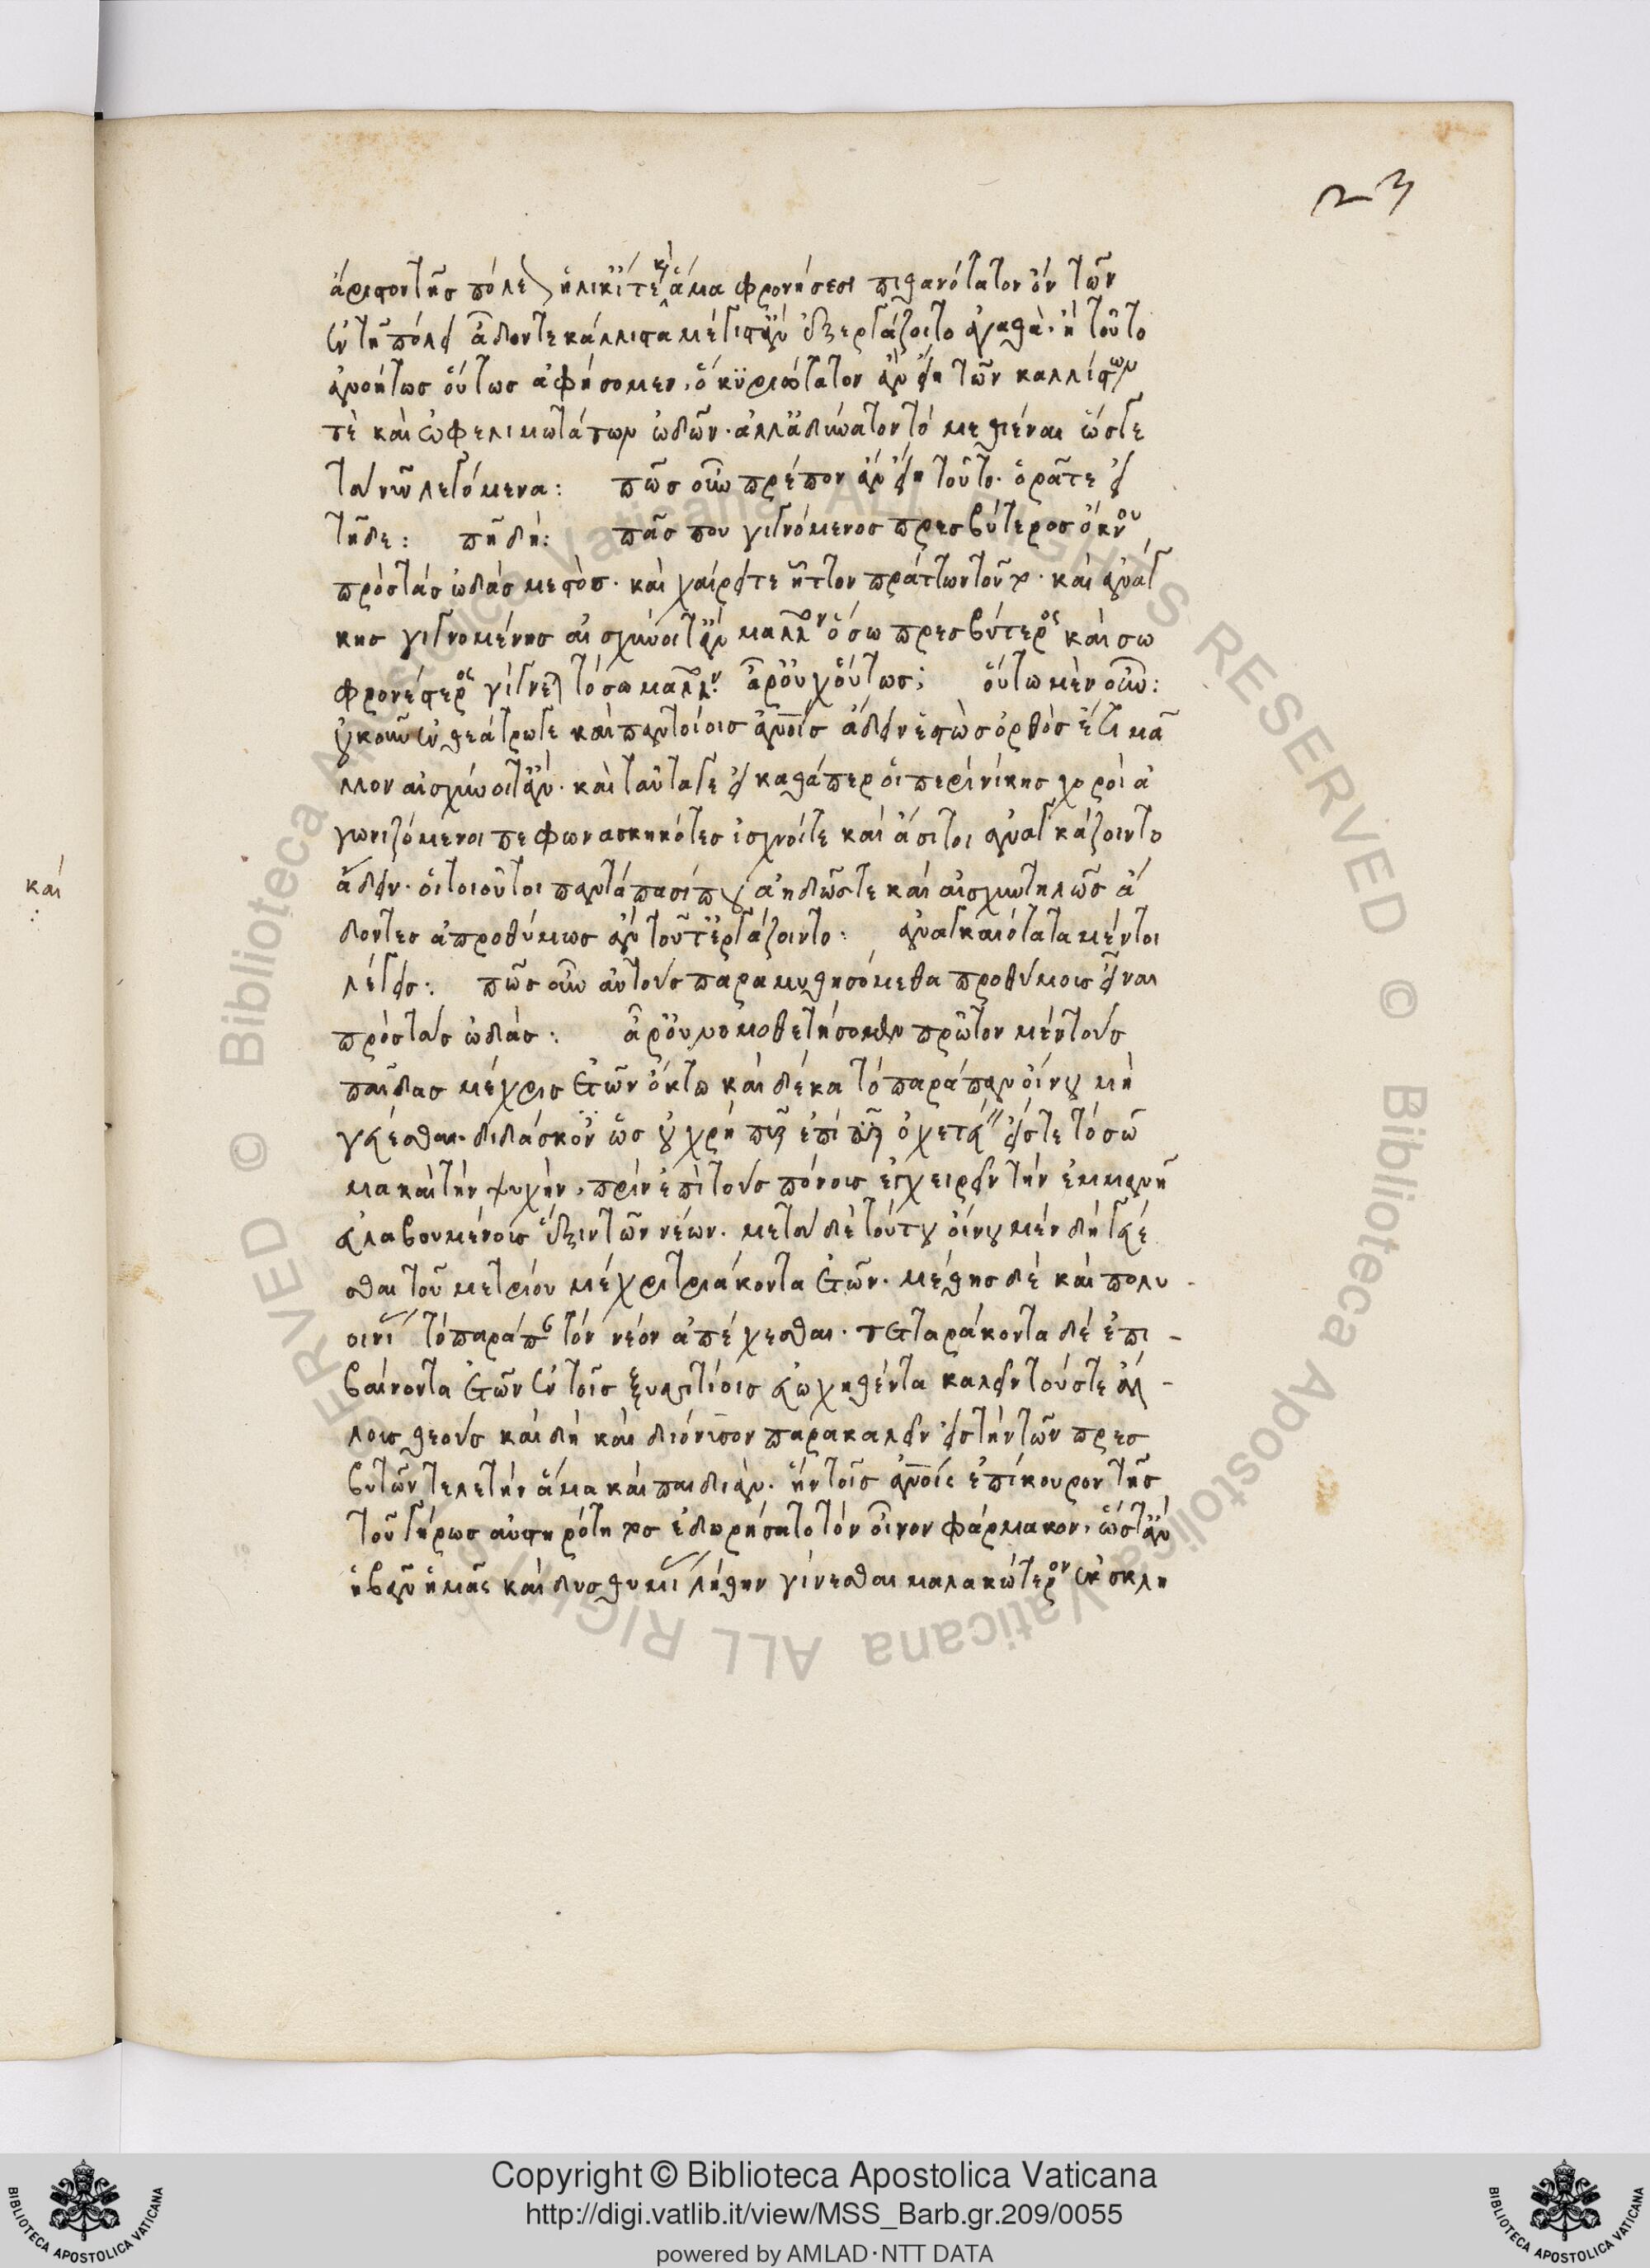 23
ἄριστον τῆς πόλεως ἡλικίαις τε καὶ ἅμα φρονήσεσι πιθανώτατον ὂν τῶν
ἐν τῇ πόλει ᾆδον τὰ κάλλιστα μέγιστ' ἂν ἐξεργάζοιτο ἀγαθά. ἢ τοῦτο
ἀνοήτως οὕτως ἀφήσομεν, ὃ κυριώτατον ἂν εἴη τῶν καλλίστων
τὲ καὶ ὠφελιμωτάτων ὠδῶν. ἀλλὰ ἀδύνατον τὸ μεθιέναι ὥς γε
τὰ νῦν λεγόμενα: πῶς οὖν πρέπον ἂν εἴη τοῦτο. ὁρᾶτε εἰ
τῇδε: πῇ δή: πᾶς που γιγνόμενος πρεσβύτερος ὄκνου
πρὸς τὰς ὠδὰς μεστός. καὶ χαίρει τε ἧττον πράττων τοῦτο. καὶ ἀνάγ
κης γιγνομένης αἰσχύνοιτ' ἂν μᾶλλον ὅσω πρεσβύτερος καὶ σω
φρονέστερος γίγνεται τόσω μᾶλλον. ἆρ' οὐχ οὕτως; οὕτω μὲν οὖν:
οὐκοῦν ἐν θεάτρω γε καὶ παντοίοις ἀνθρώποις ἄδειν ἑστὼς ὀρθὸς ἔτι μᾶ
λλον αἰσχύνοιτ' ἄν. καὶ ταῦτά γε εἰ καθάπερ οἱ περὶ νίκης χοροὶ ἀ
γωνιζόμενοι πεφωνασκηκότες ἰσχνοί τε καὶ ἄσιτοι ἀναγκάζοιντο
ἄδειν. οἱ τοιοῦτοι παντάπασί που ἀηδῶς τε καὶ αἰσχυντηλῶς ἄ
δοντες ἀπροθύμως ἂν τοῦτ' ἐργάζοιντο: ἀναγκαιότατα μέντοι
λέγεις: πῶς οὖν αὐτοὺς παραμυθησόμεθα προθύμους εἶναι
πρὸς τὰς ὠδάς: ἆρ' οὐ νομοθετήσομεν πρῶτον μὲν τοὺς
παῖδας μέχρις ἐτῶν ὀκτω καὶ δέκα τὸ παράπαν οἴνου μὴ
γεύεσθαι. διδάσκοντες ὡς οὐ χρὴ πῦρ ἐπὶ πῦρ ὀχετεύειν εἴς τε τὸ σῶ
μα καὶ τὴν ψυχήν, πρὶν ἐπὶ τοὺς πόνους ἐγχειρεῖν τὴν ἐμμανῆ
εὐλαβουμένοις ἕξιν τῶν νέων. μετὰ δὲ τοῦτο οἴνου μὲν δὴ γεύε
σθαι τοῦ μετρίου μέχρι τριάκοντα ἐτῶν. μέθης δὲ καὶ πολυ-
οινίας τὸ παράπαν τὸν νέον ἀπέχεσθαι. τετταράκοντα δὲ ἐπι-
βαίνοντα ἐτῶν ἐν τοῖς ξυσσιτίοις εὐωχηθέντα καλεῖν τούς τε ἄλ-
λους θεοὺς καὶ δὴ καὶ διόνυσον παρακαλεῖν εἰς τὴν τῶν πρεσ
βυτῶν τελετὴν ἅμα καὶ παιδιάν. ἣν τοῖς ἀνθρώποις ἐπίκουρον τῆς
τοῦ γήρως αὐστηρότητος ἐδωρήσατο τὸν οἶνον φάρμακον, ὥστ' ἀν
ηβᾶν ἡμᾶς καὶ δυσθυμίας λήθην γίνεσθαι μαλακώτερον ἐκ σκλη
καὶ
Copyright © Biblioteca Apostolica Vaticana
http://digi.vatlib.it/view/MSS_Barb.gr.209/0055
powered by AMLAD·NTT DATA
BIBLIOTECA APOSTOLICA VATICANA
BIBLIOTECA APOSTOLICA VATICANA
© Biblioteca Apostolica Vaticana ALL RIGHTS RESERVED © Biblioteca Apostolica Vaticana ALL RIGHTS RESERVED